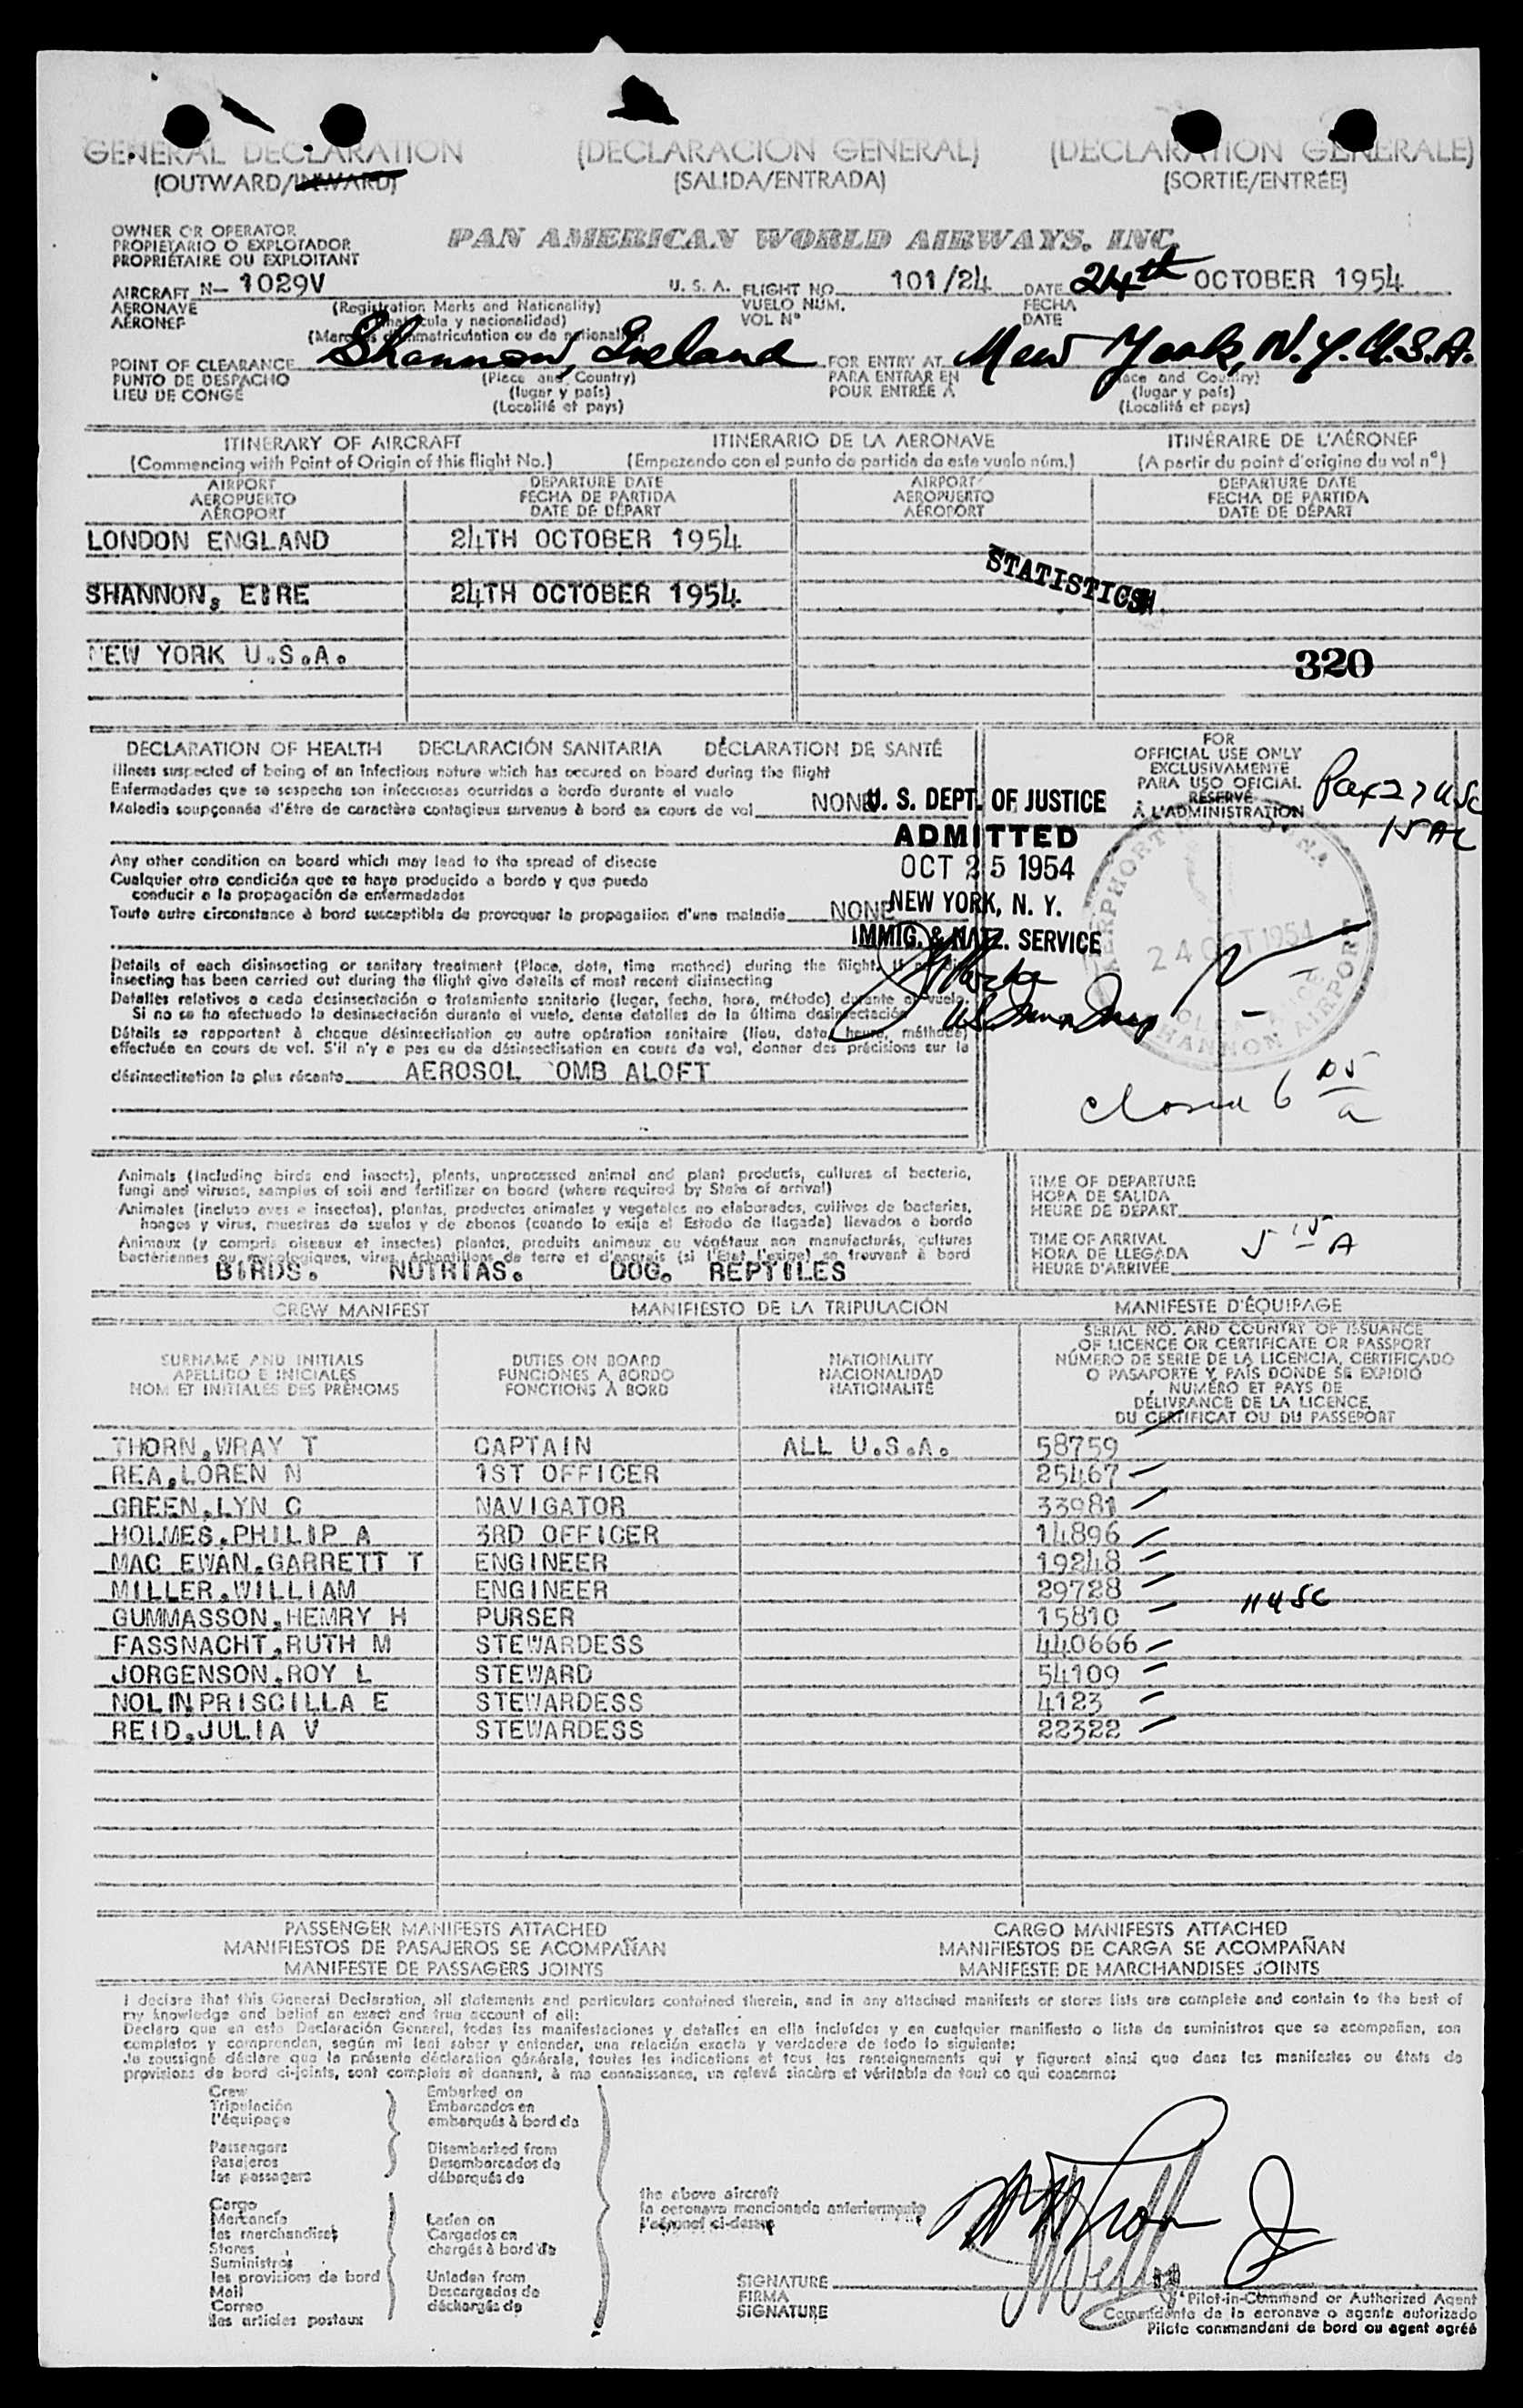 GENERAL DECLARATION (DECLARACION GENERAL) (DECLARATION GENERALE)
(OUTWARD/INWARD) (SALIDA/ENTRADA) (SORTIE/ENTRÉE)
OWNER OR OPERATOR
PROPIETARIO O EXPLOTADOR
PROPRIÉTAIRE OU EXPLOITANT
PAN AMERICAN WORLD AIRWAYS, INC.
AIRCRAFT N- 1029V U. S. A. FLIGHT NO. 101/24 DATE 24th OCTOBER 1954
AERONAVE (Registration Marks and Nationality) VUELO NUM. FECHA
AÉRONEF (Matrícula y nacionalidad) VOL N° DATE
(Marques d'immatriculation ou de nationalité)
POINT OF CLEARANCE Shannon, Ireland FOR ENTRY AT New York, N.Y. U.S.A.
PUNTO DE DESPACHO (Place and Country) PARA ENTRAR EN (Place and Country)
LIEU DE CONGÉ (lugar y país) POUR ENTRÉE À (lugar y país)
(Localité et pays) (Localité et pays)
ITINERARY OF AIRCRAFT ITINERARIO DE LA AERONAVE ITINÉRAIRE DE L'AÉRONEF
(Commencing with Point of Origin of this flight No.) (Empezando con el punto de partida de este vuelo núm.) (A partir du point d'origine du vol n°)
AIRPORT DEPARTURE DATE AIRPORT DEPARTURE DATE
AEROPUERTO FECHA DE PARTIDA AEROPUERTO FECHA DE PARTIDA
AÉROPORT DATE DE DÉPART AÉROPORT DATE DE DÉPART
LONDON ENGLAND 24TH OCTOBER 1954
STATISTICS
SHANNON, EIRE 24TH OCTOBER 1954
NEW YORK U.S.A.
320
DECLARATION OF HEALTH DECLARACIÓN SANITARIA DÉCLARATION DE SANTÉ
Illness suspected of being of an infectious nature which has occured on board during the flight
Enfermedades que se sospecha son infecciosas ocurridas a bordo durante el vuelo
Maladie soupçonnée d'être de caractère contagieux survenue à bord en cours de vol NONE
Any other condition on board which may lead to the spread of disease
Cualquier otra condición que se haya producido a bordo y que pueda
conducir a la propagación de enfermedades
Toute autre circonstance à bord susceptible de provoquer la propagation d'une maladie NONE
Details of each disinsecting or sanitary treatment (Place, date, time method) during the flight. If no dis-
insecting has been carried out during the flight give details of most recent disinsecting
Detalles relativos a cada desinsectación o tratamiento sanitario (lugar, fecha, hora, método) durante el vuelo.
Si no se ha efectuado la desinsectación durante el vuelo, dense detalles de la última desinsectación
Détails se rapportant à chaque désinsectisation ou autre opération sanitaire (lieu, date, heure, méthode)
effectuée en cours de vol. S'il n'y a pas eu de désinsectisation en cours de vol, donner des précisions sur la
désinsectisation la plus récente AEROSOL OMB ALOFT
FOR
OFFICIAL USE ONLY
EXCLUSIVAMENTE
PARA USO OFICIAL
RÉSERVÉ
À L'ADMINISTRATION
Pax 27 USC
15 AL
U. S. DEPT. OF JUSTICE
ADMITTED
OCT 25 1954
NEW YORK, N. Y.
IMMIG. & NATZ. SERVICE
24 OCT 1954
SHANNON AIRPORT
closed 6 05 a
Animals (including birds and insects), plants, unprocessed animal and plant products, cultures of bacteria,
fungi and viruses, samples of soil and fertilizer on board (where required by State of arrival)
Animales (incluso aves e insectos), plantas, productos animales y vegetales no elaborados, cultivos de bacterias,
hongos y virus, muestras de suelos y de abonos (cuando lo exija el Estado de llegada) llevados a bordo
Animaux (y compris oiseaux et insectes) plantes, produits animaux ou végétaux non manufacturés, cultures
bactériennes ou mycologiques, virus, échantillons de terre et d'engrais (si l'État l'exige) se trouvant à bord
BIRDS. NUTRIAS. DOG. REPTILES
TIME OF DEPARTURE
HORA DE SALIDA
HEURE DE DÉPART
TIME OF ARRIVAL
HORA DE LLEGADA
HEURE D'ARRIVÉE
5 15 A
CREW MANIFEST MANIFIESTO DE LA TRIPULACIÓN MANIFESTE D'ÉQUIPAGE
SURNAME AND INITIALS
APELLIDO E INICIALES
NOM ET INITIALES DES PRÉNOMS
DUTIES ON BOARD
FUNCIONES A BORDO
FONCTIONS À BORD
NATIONALITY
NACIONALIDAD
NATIONALITÉ
SERIAL NO. AND COUNTRY OF ISSUANCE
OF LICENCE OR CERTIFICATE OR PASSPORT
NÚMERO DE SERIE DE LA LICENCIA, CERTIFICADO
O PASAPORTE Y PAÍS DONDE SE EXPIDIÓ
NUMÉRO ET PAYS DE
DÉLIVRANCE DE LA LICENCE,
DU CERTIFICAT OU DU PASSEPORT
THORN,WRAY T CAPTAIN ALL U.S.A. 58759
REA,LOREN N 1ST OFFICER 25467
GREEN,LYN C NAVIGATOR 33981
HOLMES,PHILIP A 3RD OFFICER 14896
MAC EWAN,GARRETT T ENGINEER 19248
MILLER,WILLIAM ENGINEER 29728
GUMMASSON,HEMRY H PURSER 15810 11 USC
FASSNACHT,RUTH M STEWARDESS 440666
JORGENSON,ROY L STEWARD 54109
NOLIN PRISCILLA E STEWARDESS 4123
REID,JULIA V STEWARDESS 22322
PASSENGER MANIFESTS ATTACHED CARGO MANIFESTS ATTACHED
MANIFIESTOS DE PASAJEROS SE ACOMPAÑAN MANIFIESTOS DE CARGA SE ACOMPAÑAN
MANIFESTE DE PASSAGERS JOINTS MANIFESTE DE MARCHANDISES JOINTS
I declare that this General Declaration, all statements and particulars contained therein, and in any attached manifests or stores lists are complete and contain to the best of
my knowledge and belief an exact and true account of all:
Declaro que en esta Declaración General, todas las manifestaciones y detalles en ella incluídos y en cualquier manifiesto o lista de suministros que se acompañen, son
completos y comprenden, según mi leal saber y entender, una relación exacta y verdadera de todo lo siguiente:
Je soussigné déclare que la présente déclaration générale, toutes les indications et tous les renseignements qui y figurent ainsi que dans les manifestes ou états de
provisions de bord ci-joints, sont complets et donnent, à ma connaissance, un relevé sincère et véritable de tout ce qui concerne:
Crew
Tripulación
l'équipage
Passengers
Pasajeros
les passagers
Embarked on
Embarcados en
embarqués à bord de
Disembarked from
Desembarcados de
débarqués de
Cargo
Mercancía
les merchandises
Stores
Suministros
les provisions de bord
Mail
Correo
les articles postaux
Laden on
Cargados en
chargés à bord de
Unladen from
Descargados de
déchargés de
the above aircraft
la aeronave mencionada anteriormente
l'aéronef ci-dessus
SIGNATURE
FIRMA
SIGNATURE
Pilot-in-Command or Authorized Agent
Comandante de la aeronave o agente autorizado
Pilote commandant de bord ou agent agréé